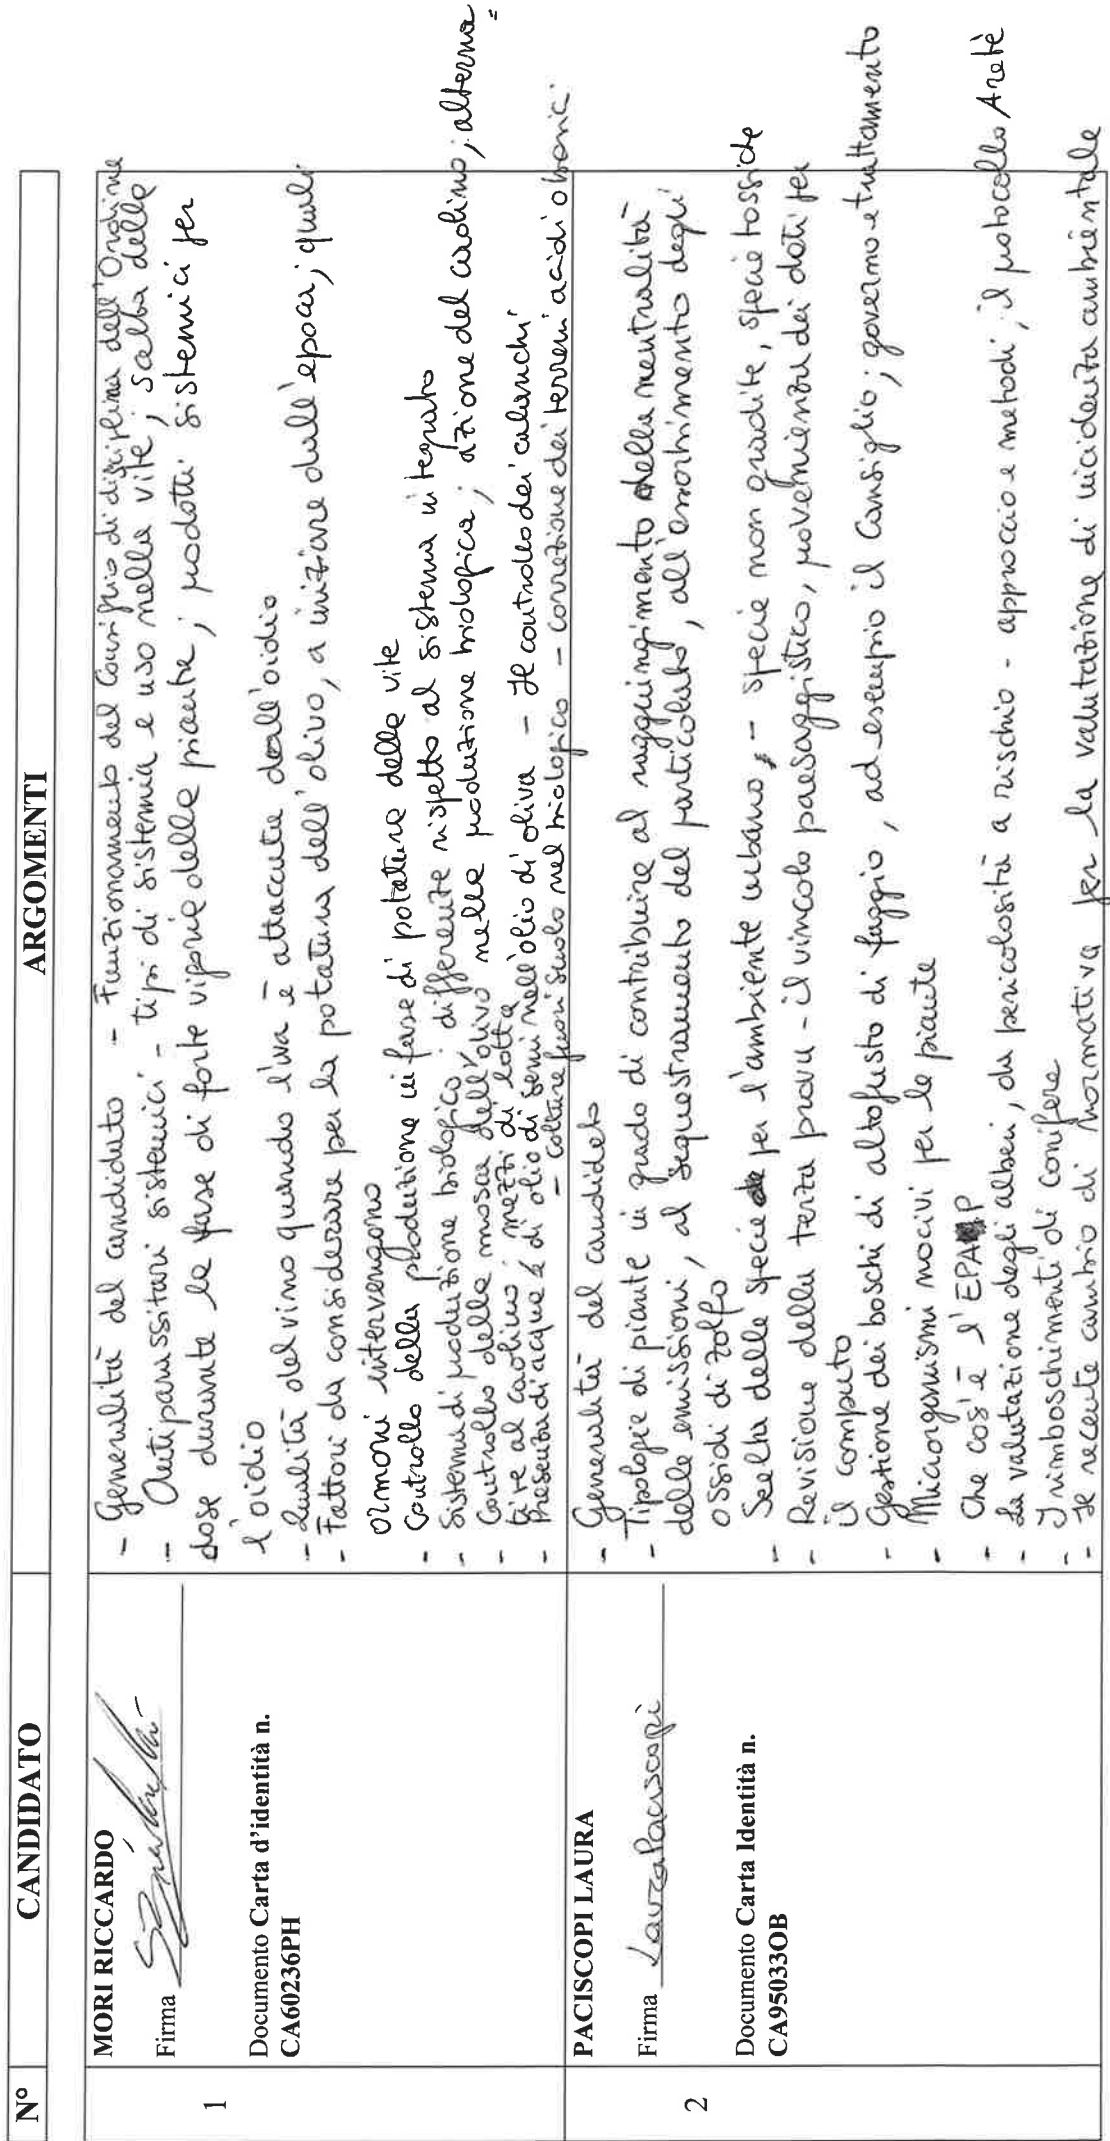 N° CANDIDATO ARGOMENTI
1
MORI RICCARDO
Firma
Documento Carta d'identità n.
CA60236PH
- Generalità del candidato - Funzionamento del Consiglio di disciplina dell'Ordine
- Antiparassitari sistemici - tipi di sistemia e uso nella vite; scelta delle
dose durante la fase di forte vigoria delle piante; prodotti sistemici per
l'oidio
- Qualità del vino quando l'uva è attaccata dall'oidio
- Fattori da considerare per la potatura dell'olivo, a iniziare dall'epoca; quali
ormoni intervengono
- Controllo della produzione in fase di potatura della vite
- Sistema di produzione biologico; differenze rispetto al sistema integrato
- Controllo della mosca dell'olivo nella produzione biologica; azione del caolino; alterna=
tive al caolino; mezzi di lotta
- Presenza di acqua e di olio di semi nell'olio di oliva - Il controllo dei calanchi
- Colture fuori suolo nel biologico - correzione dei terreni acidi o basici
2
PACISCOPI LAURA
Firma Laura Paciscopi
Documento Carta Identità n.
CA95033OB
- Generalità del candidato
- Tipologie di piante in grado di contribuire al raggiungimento della neutralità
delle emissioni, al sequestramento del particolato, all'assorbimento degli
ossidi di zolfo
- Scelta delle specie per l'ambiente urbano, - specie non gradite, specie tossiche
- Revisione della terza prova - il vincolo paesaggistico, provenienza dei dati per
il computo
- Gestione dei boschi di altofusto di faggio, ad esempio il Cansiglio; governo e trattamento
- Microrganismi nocivi per le piante
- Che cos'è l'EPAP
- La valutazione degli alberi, da pericolosità a rischio - approccio e metodi; il protocollo Aretè
- I rimboschimenti di conifere
- Il recente cambio di normativa per la valutazione di incidenza ambientale